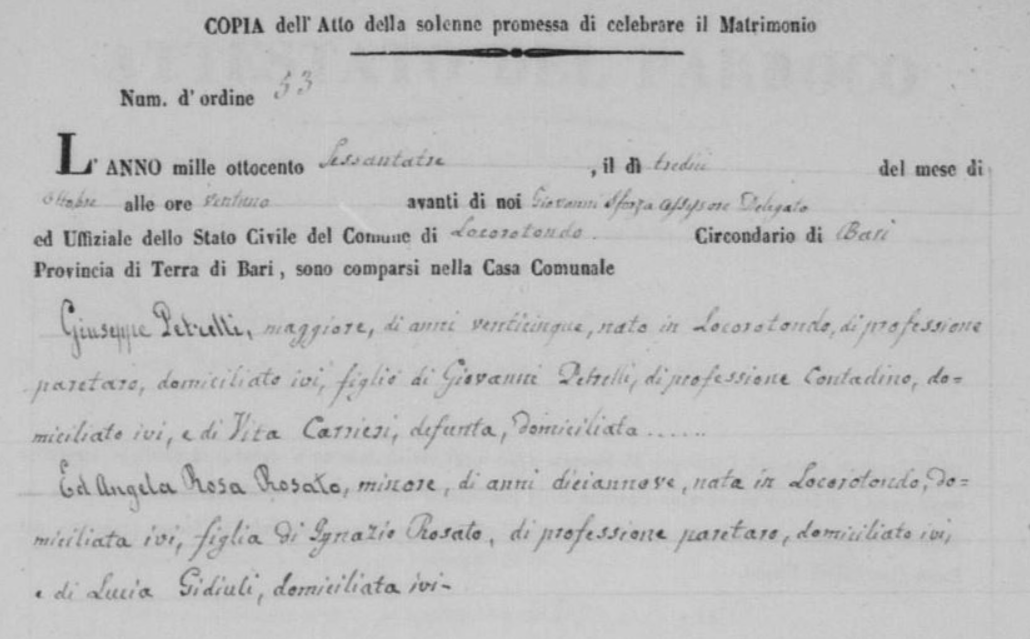 COPIA dell' Atto della solenne promessa di celebrare il Matrimonio
Num. d' ordine 53
L' ANNO mille ottocento Sessantatre, il dì tredici del mese di
Ottobre alle ore ventuno avanti di noi Giovanni Sforza Assessore Delegato
ed Uffiziale dello Stato Civile del Comune di Locorotondo. Circondario di Bari
Provincia di Terra di Bari, sono comparsi nella Casa Comunale
Giuseppe Petrelli, maggiore, di anni venticinque, nato in Locorotondo, di professione
paretaro, domiciliato ivi, figlio di Giovanni Petrelli, di professione Contadino, do=
miciliato ivi, e di Vita Carrieri, defunta, domiciliata ......
Ed Angela Rosa Rosato, minore, di anni diciannove, nata in Locorotondo, do=
miciliata ivi, figlia di Ignazio Rosato, di professione paretaro, domiciliato ivi,
e di Lucia Gidiuli, domiciliata ivi-